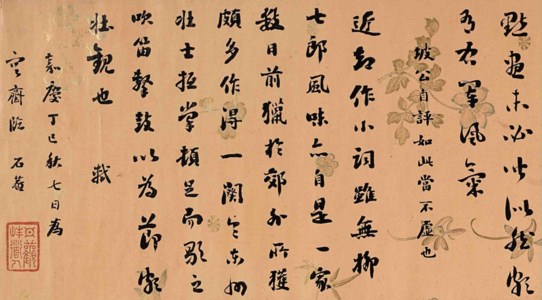 點畫未必皆似然頗
有右軍風氣
坡公自評如此當不虛也
近却作小詞雖無柳
七郎風味亦自是一家
數日前獵於郊外所獲
頗多作得一闋令東州
壯士抵掌頓足而歌之
吹笛擊鼓以為節頗
壯觀也 軾
嘉慶丁巳秋七日為
齋臨 石菴